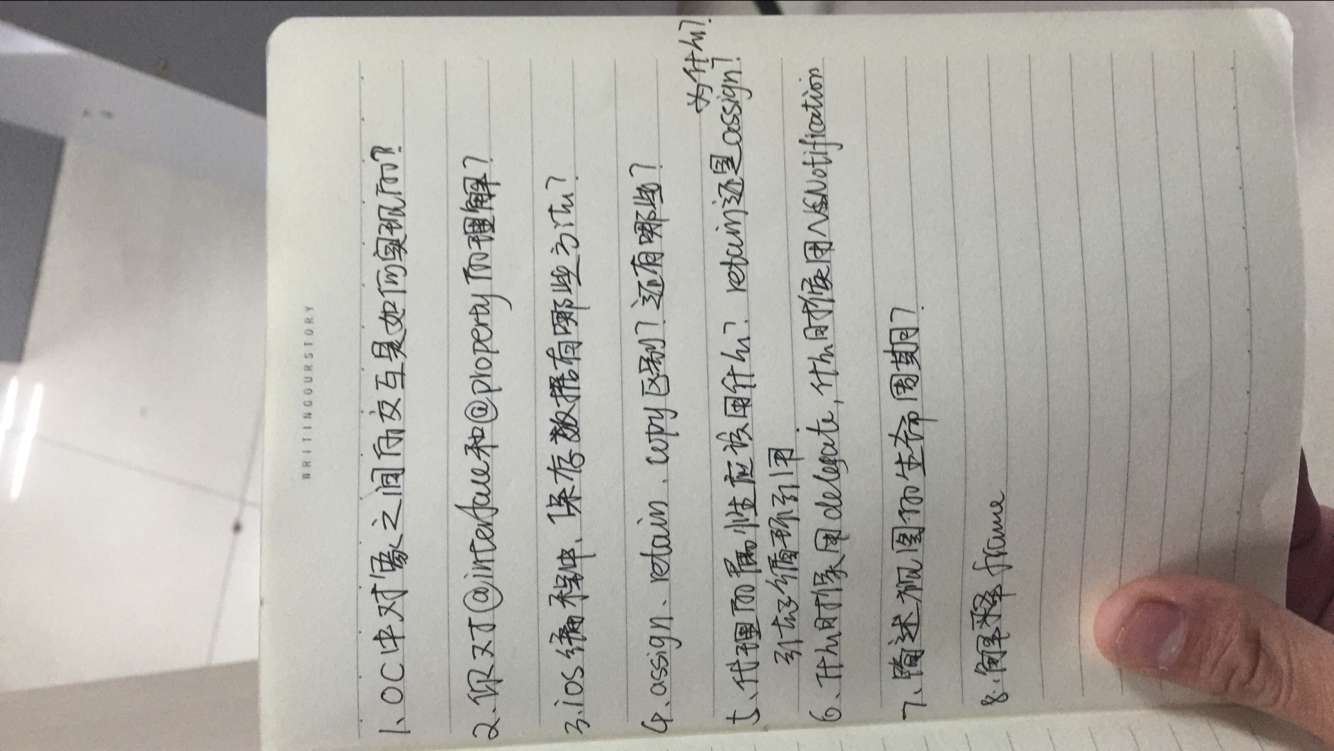 WRITINGOURSTORY
1、OC中对象之间的交互是如何实现的?
2、你对@interface和@property的理解?
3、ios编程中、保存数据有哪些方法?
4、assign、retain、copy区别?还有哪些?
为什么?
5、代理的属性应该用什么? retain还是assign?
引起循环引用.
6、什么时候用delegate,什么时候用NSNotification
7、简述视图的生命周期?
8、解释frame